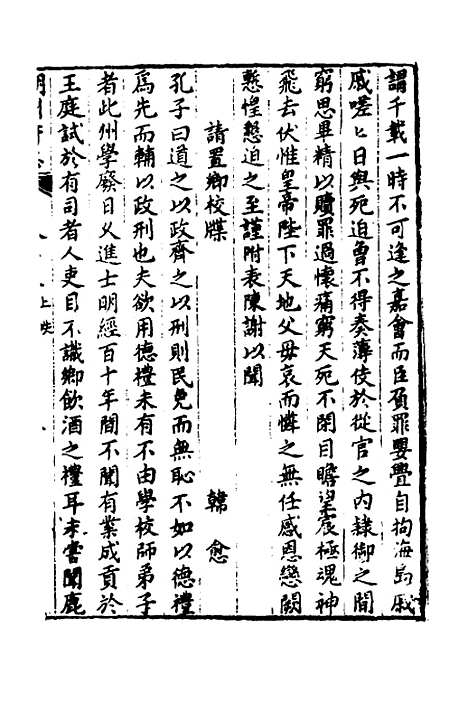 謂千載一時不可逢之嘉會而臣負罪嬰舋自拘海島戚
戚嗟々日與死迫曾不得奏薄伎於從官之内隸御之間
窮思畢精以贖罪過懷痛窮天死不閉目瞻望宸極魂神
飛去伏惟皇帝陛下天地父母哀而憐之無任感恩戀闕
慙惶懇迫之至謹附表陳謝以聞
請置鄉校牒
韓愈
孔子曰道之以政齊之以刑則民免而無恥不如以德禮
爲先而輔以政刑也夫欲用德禮未有不由學校師弟子
者此州學廢日久進士明經百十年間不聞有業成貢於
王庭試於有司者人吏目不識鄉飲酒之禮耳未嘗聞鹿